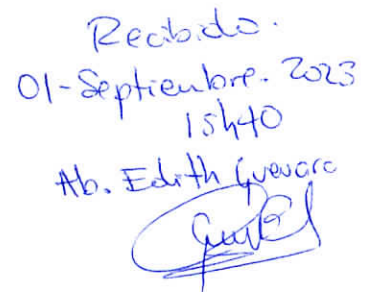 Recibido.
01-Septiembre. 2023
15h40
Ab. Edith Guevara